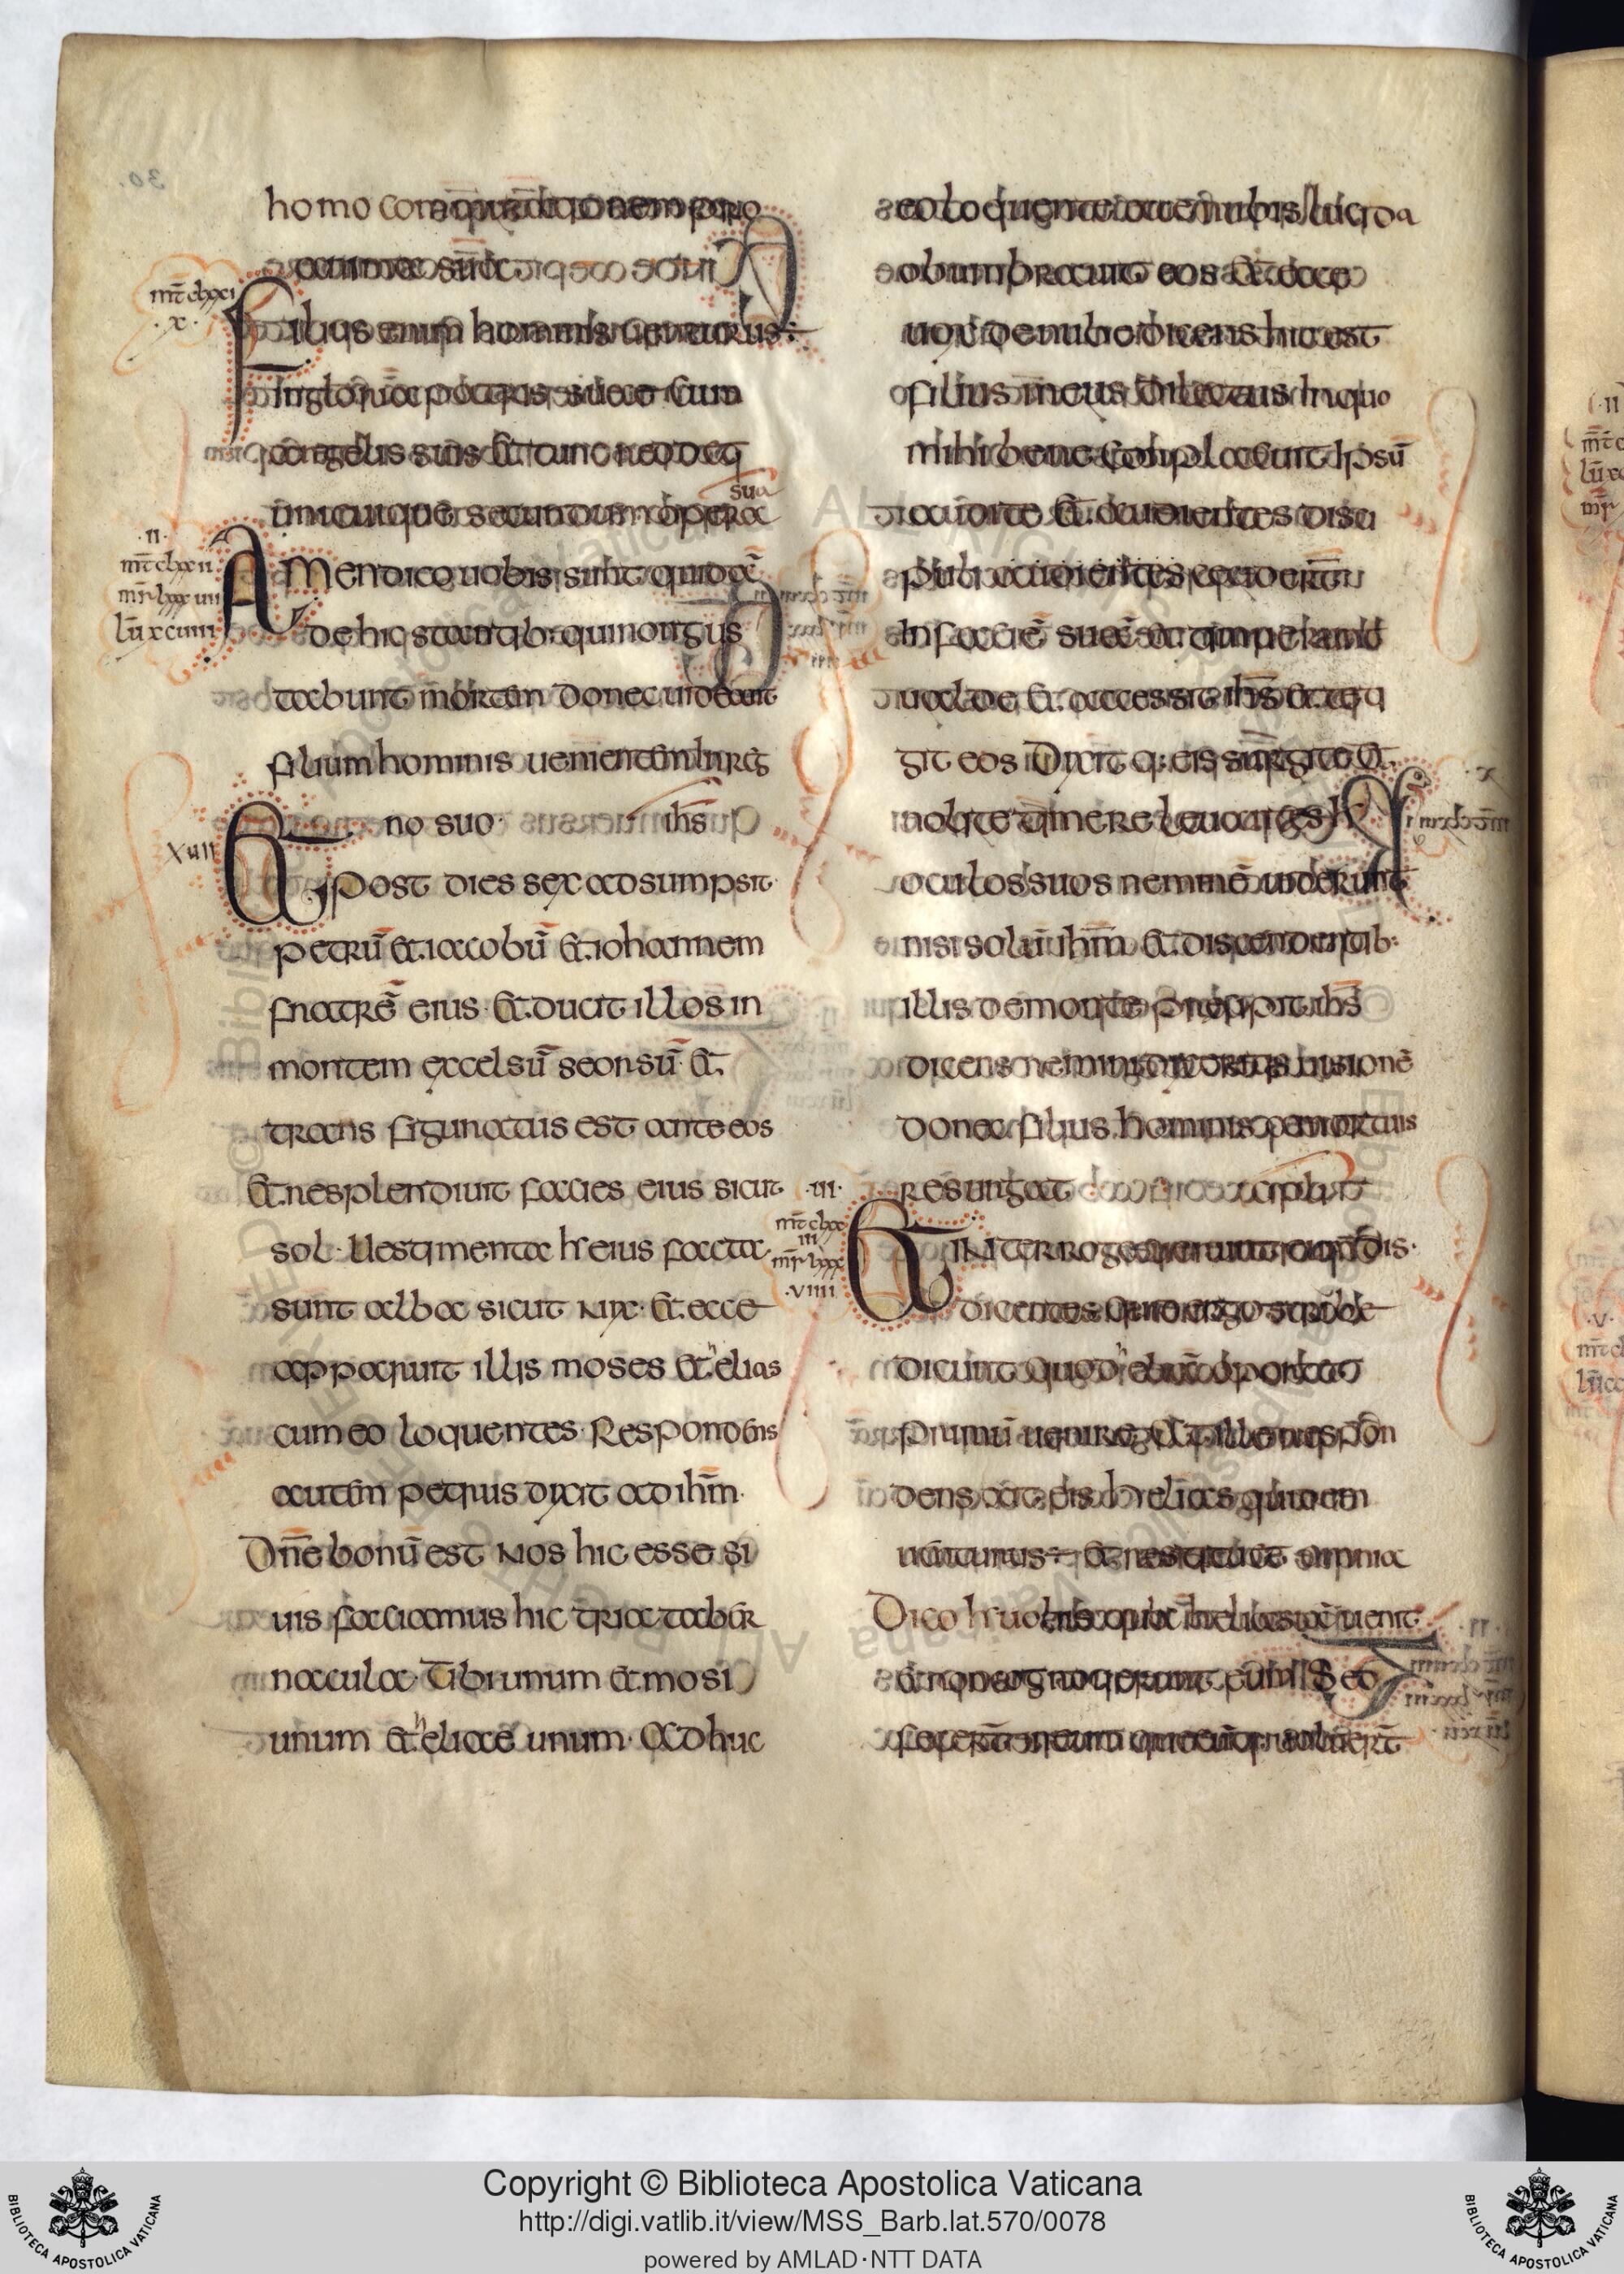 homo commutationem pro
anima sua
mt clxxi
.x.
Filius enim hominis uenturus÷
in gloria patris sui cum
angelis suis Et tunc reddet
sua
unicuique secundum opera
.II.
mt clxxii
mr lxxxuiii
lu xcuiii
AMen dico uobis sunt quidā
de hic stantib: qui non gus
tabunt mortem donec uideant
filium hominis uenientem in reg
no suo· ihs
XUII
Et post dies sex adsumpsit·
petrū et iacobū et iohannem
fratrē eius· Et ducit illos in
montem excelsū seorsū· et
trans figuratus est ante eos
Et resplenduit facies eius sicut
sol· Uestimenta hr eius facta·
sunt alba sicut nix· Et ecce
apparuit illis moses et helias
cum eo loquentes· Respondens
autem petrus dixit ad ihm̄·
Dnē bonū est nos hic esse si
uis faciamus hic tria taber
nacula· Tibi unum et mosi
unum et heliae unum· Adhuc
eo loquente ecce nubis lucida
obumbrauit eos Et ecce
uox de nube dicens hic est
filius meus dilectus in quo
mihi bene conplacuit Ipsū
audite Et audientes disci
puli ceciderūt
In faciē suā et timuerunt
ualde Et accessit ihs et teti
git eos Dixit q: eis surgite et
nolite timere
oculos suos neminē uiderunt
nisi solū ihm̄ Et discendentib:
illis de monte precipit ihs
dicens nemini dixeritis uisionē
donec filius hominis a mortuis
resurgat
.III.
mt clxx
III
mr lxxx
.VIIII
Et INterrogauerunt eum dis·
dicentes quid ergo scribe
dicunt quod heliā oporteat
primū uenire At ille respōn
dens ait eis helias quidem
uenturus÷ et restituet omnia
Dico hr uobis quia helias iā uenit
et non cognouerunt eum Sed
fecerūt in eum quecūq: uoluerūt
Copyright © Biblioteca Apostolica Vaticana
http://digi.vatlib.it/view/MSS_Barb.lat.570/0078
powered by AMLAD·NTT DATA
BIBLIOTECA APOSTOLICA VATICANA
BIBLIOTECA APOSTOLICA VATICANA